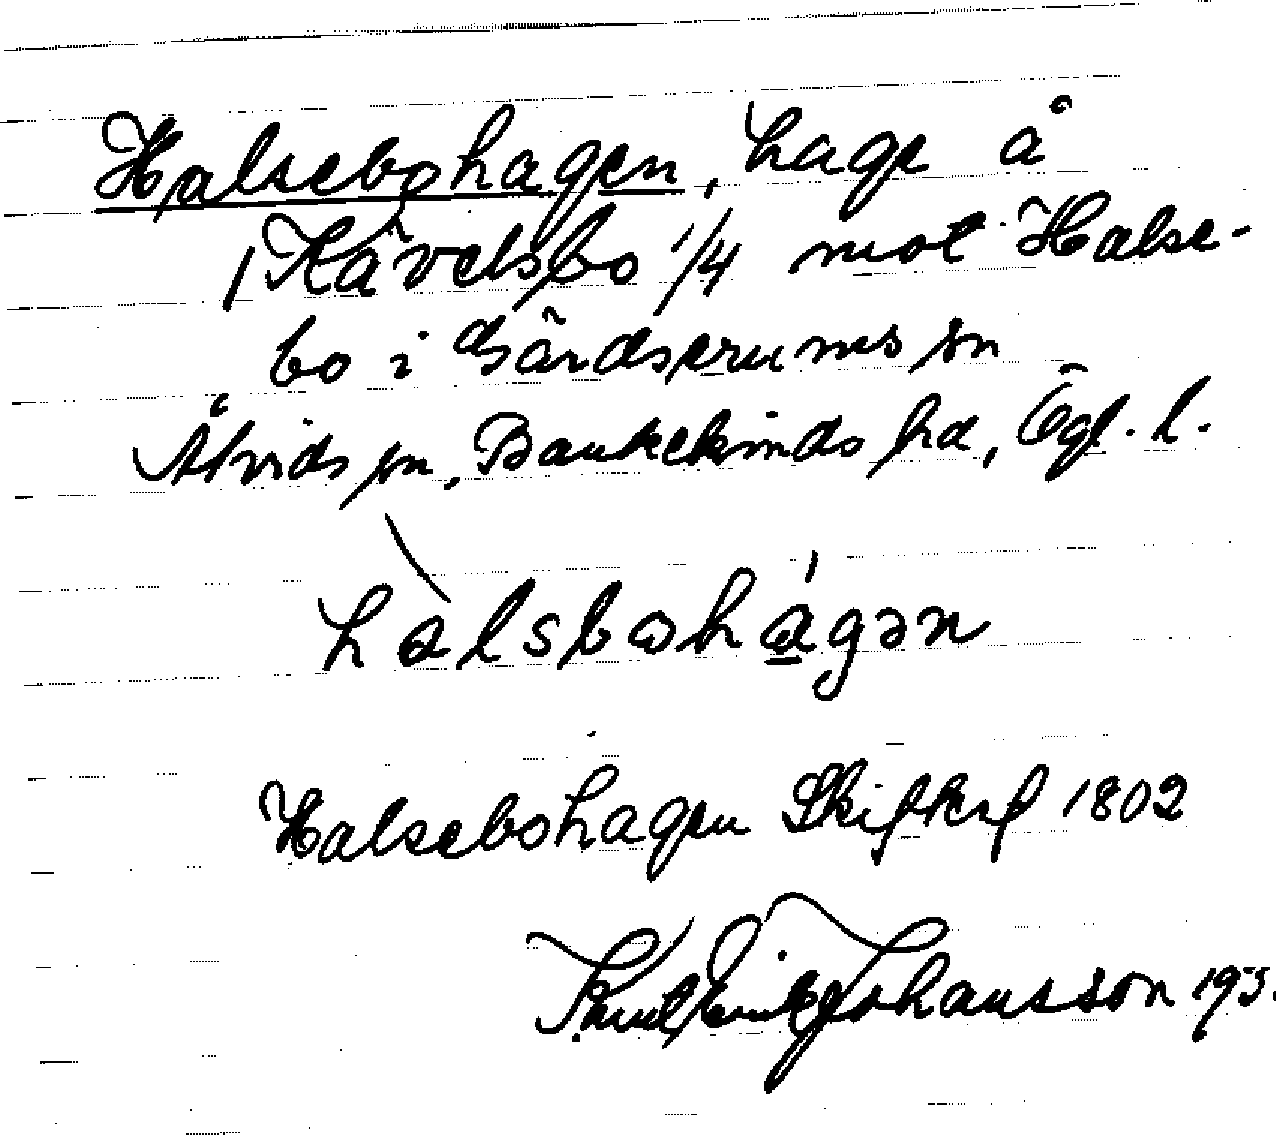 Halsebohagen, hage å
Kävelsbo 1/4 mot Halse-
bo i Gärdserums sn
Åtvids sn, Bankekinds hd, Ögl. l.
halsbohagən
Halsebohagen Skifteaf 1802
Knut Emil Johansson 193